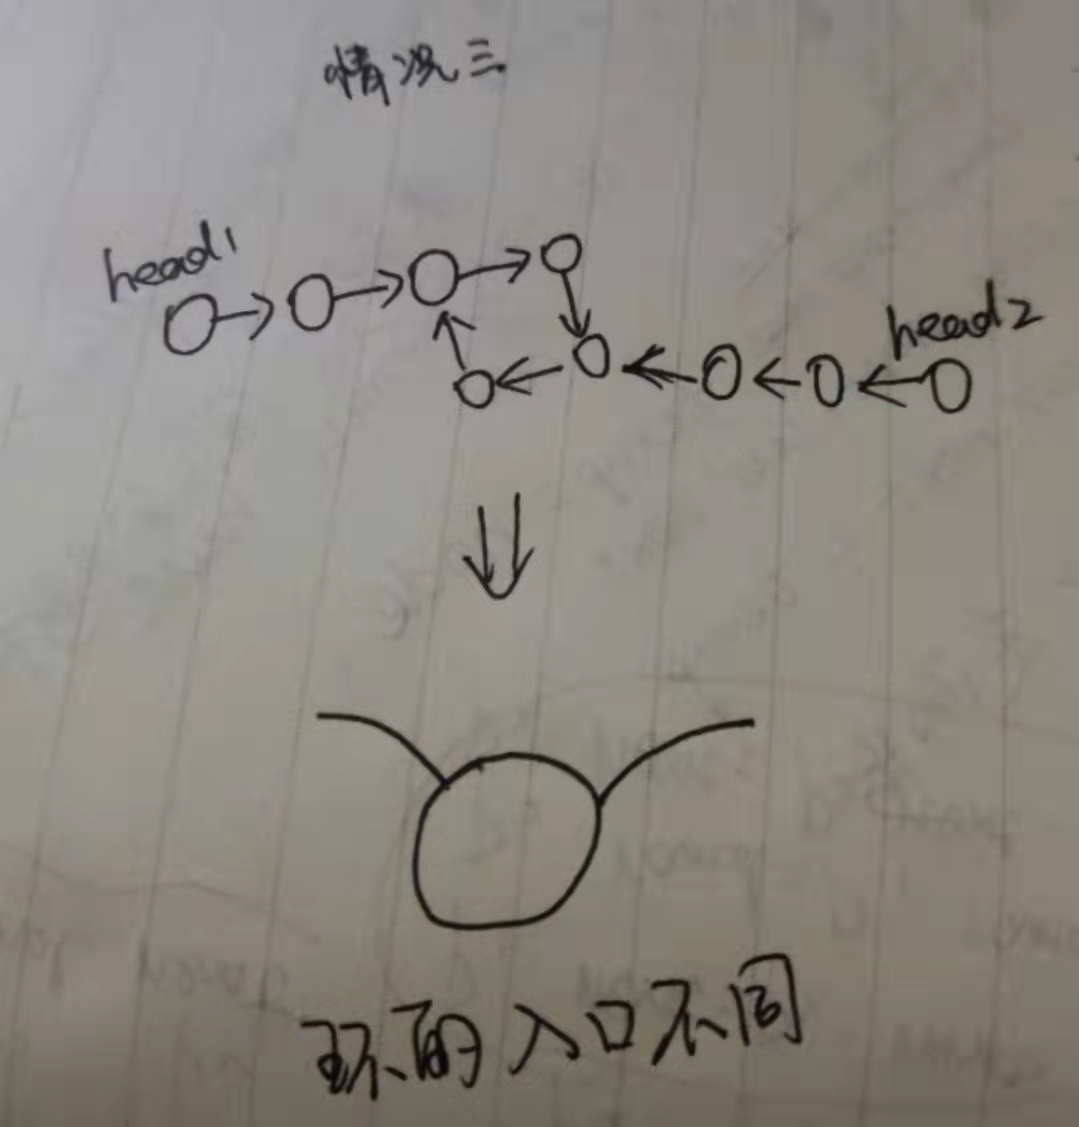 情况三
head1
head2
环的入口不同